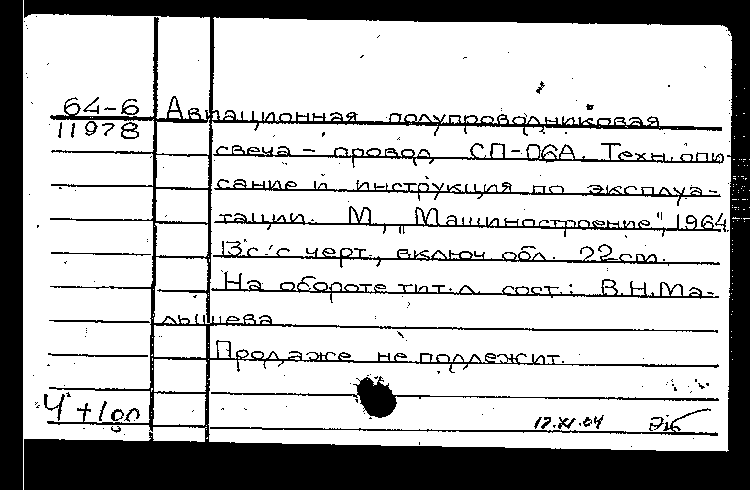 64-6 Авиационная полупроводниковая
11978
свеча - провод СП-06А. Техн. опи-
сание и инструкция по эксплуа-
тации. М., „Машиностроение", 1964
13с. с черт., включ обл. 22 cm.
На обороте тит. л. сост.: В.Н.Ма-
лышева
Продаже не подлежит.
12.XI.64